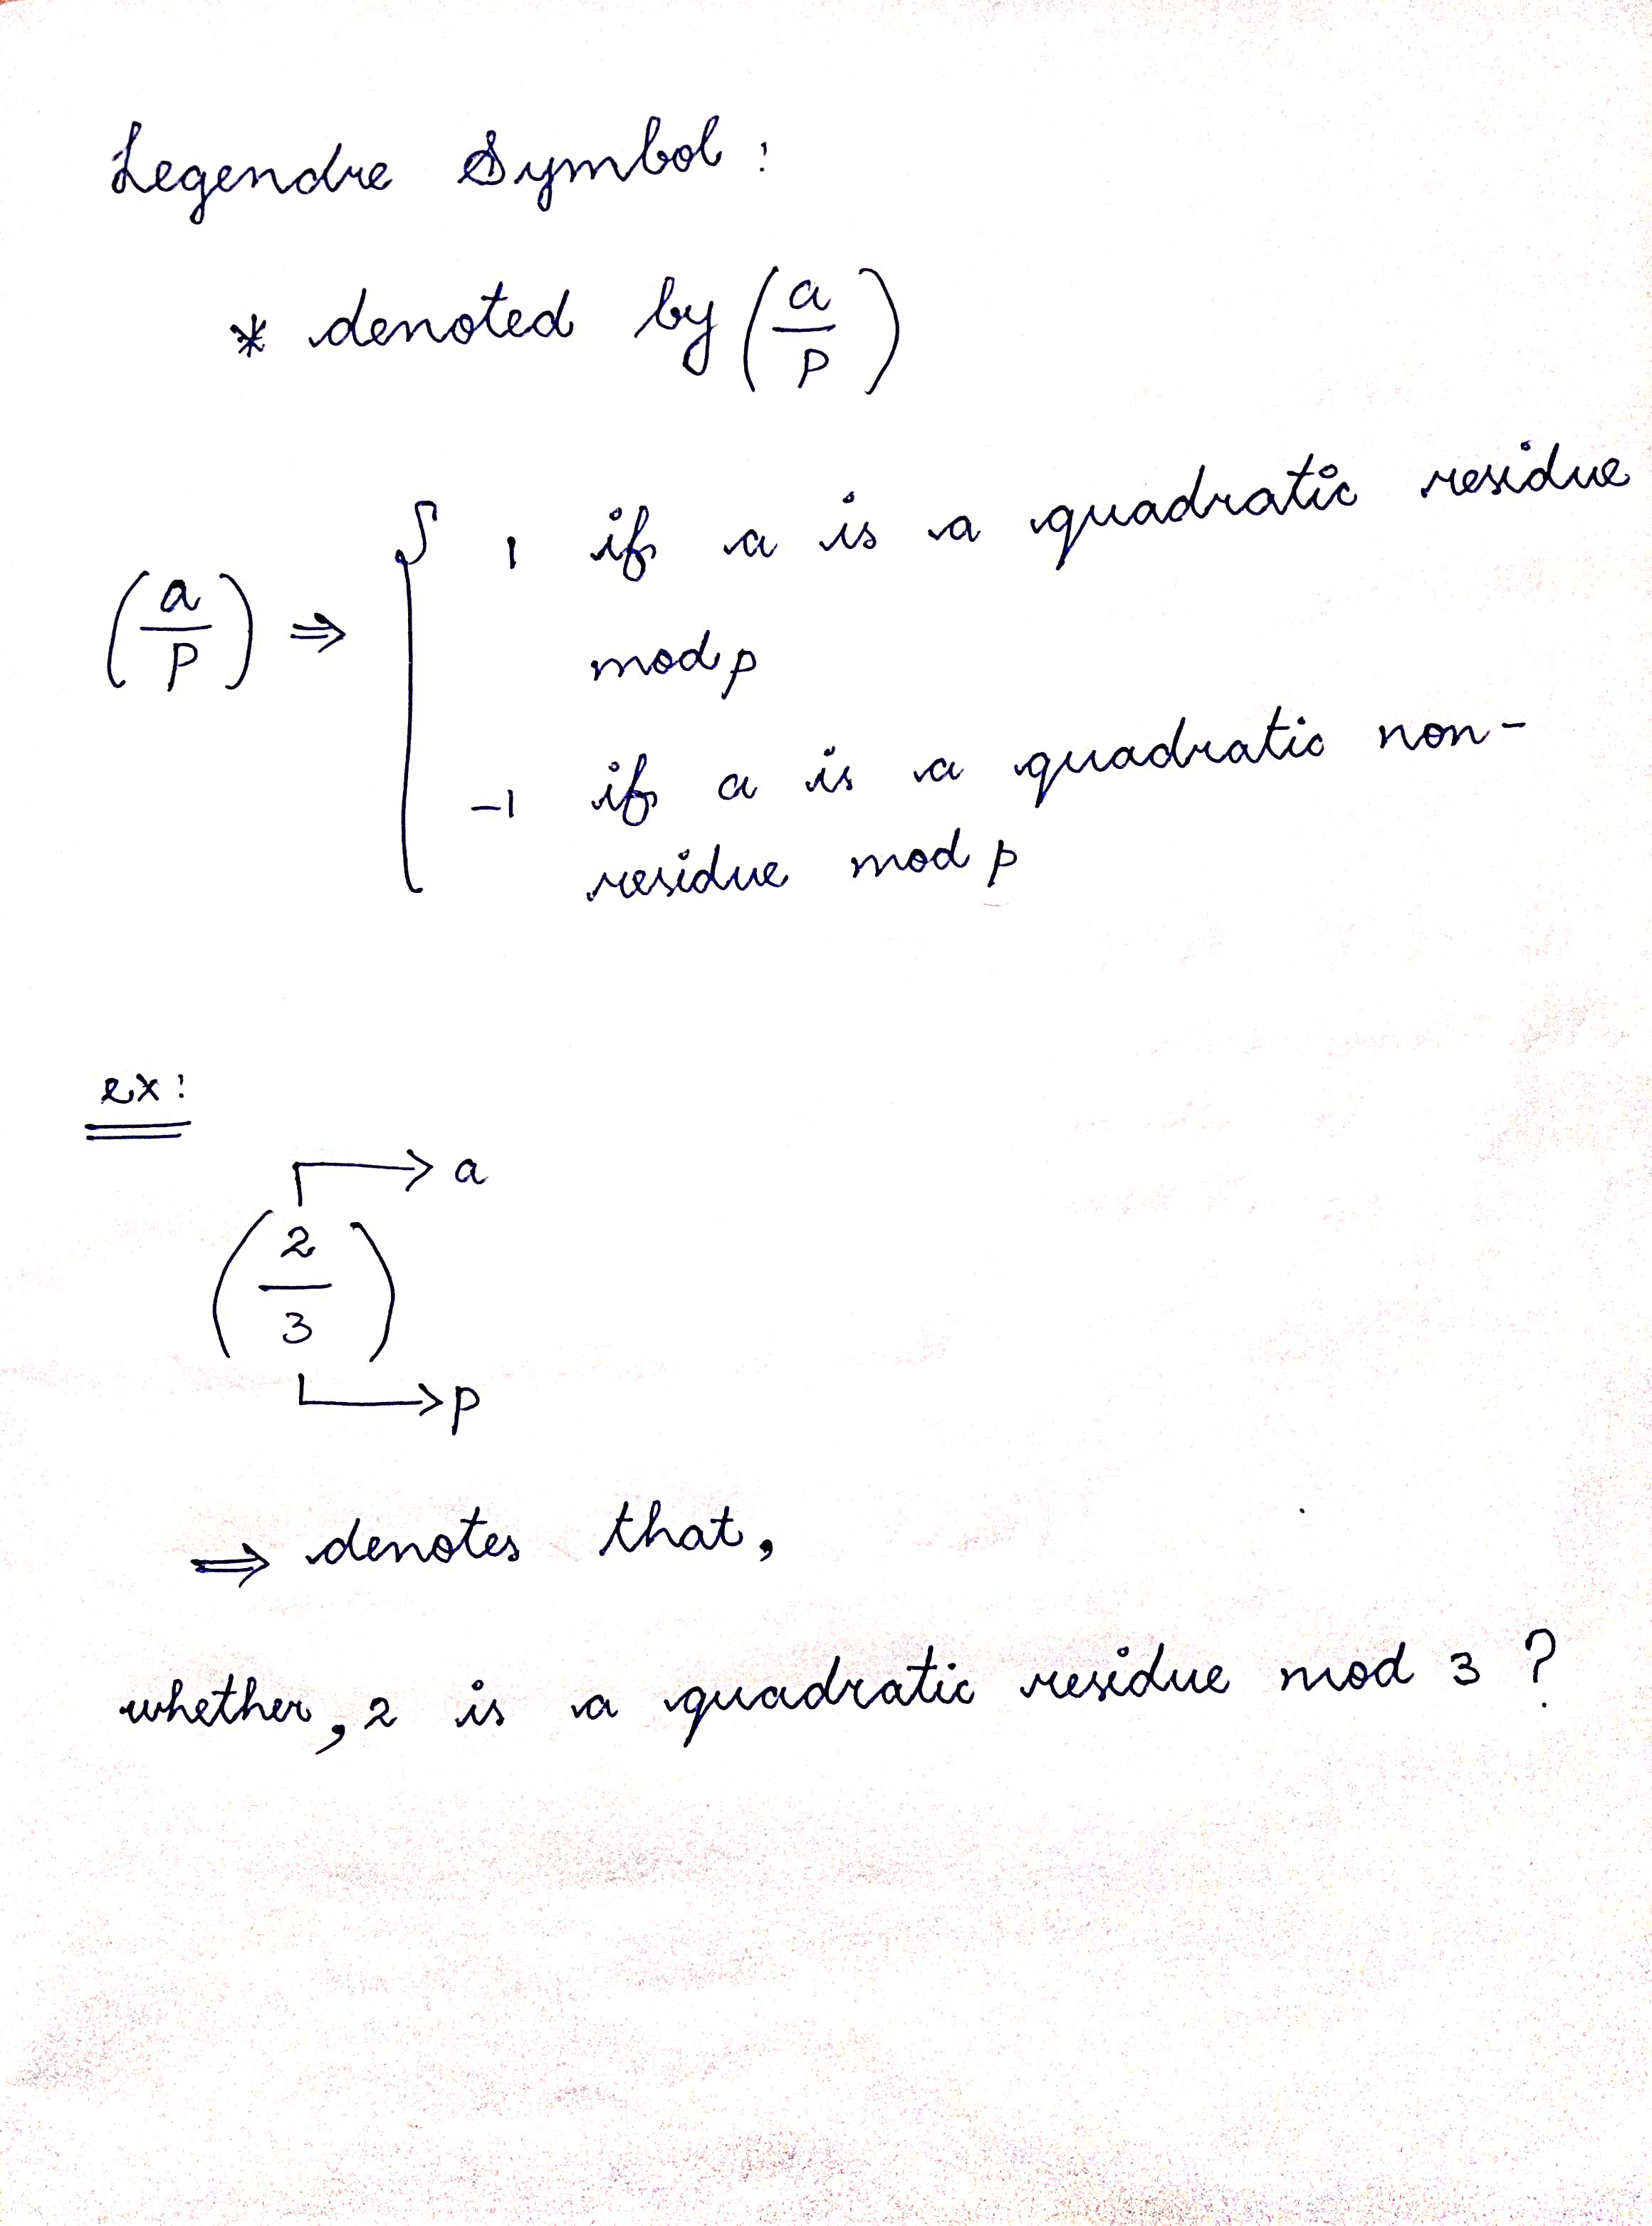 Legendre Symbol:
* denoted by (a/p)
(a/p) ⇒ { 1 if a is a quadratic residue
mod p
-1 if a is a quadratic non-
residue mod p
ex:
→ a
(2/3)
→ p
⇒ denotes that,
whether, 2 is a quadratic residue mod 3 ?